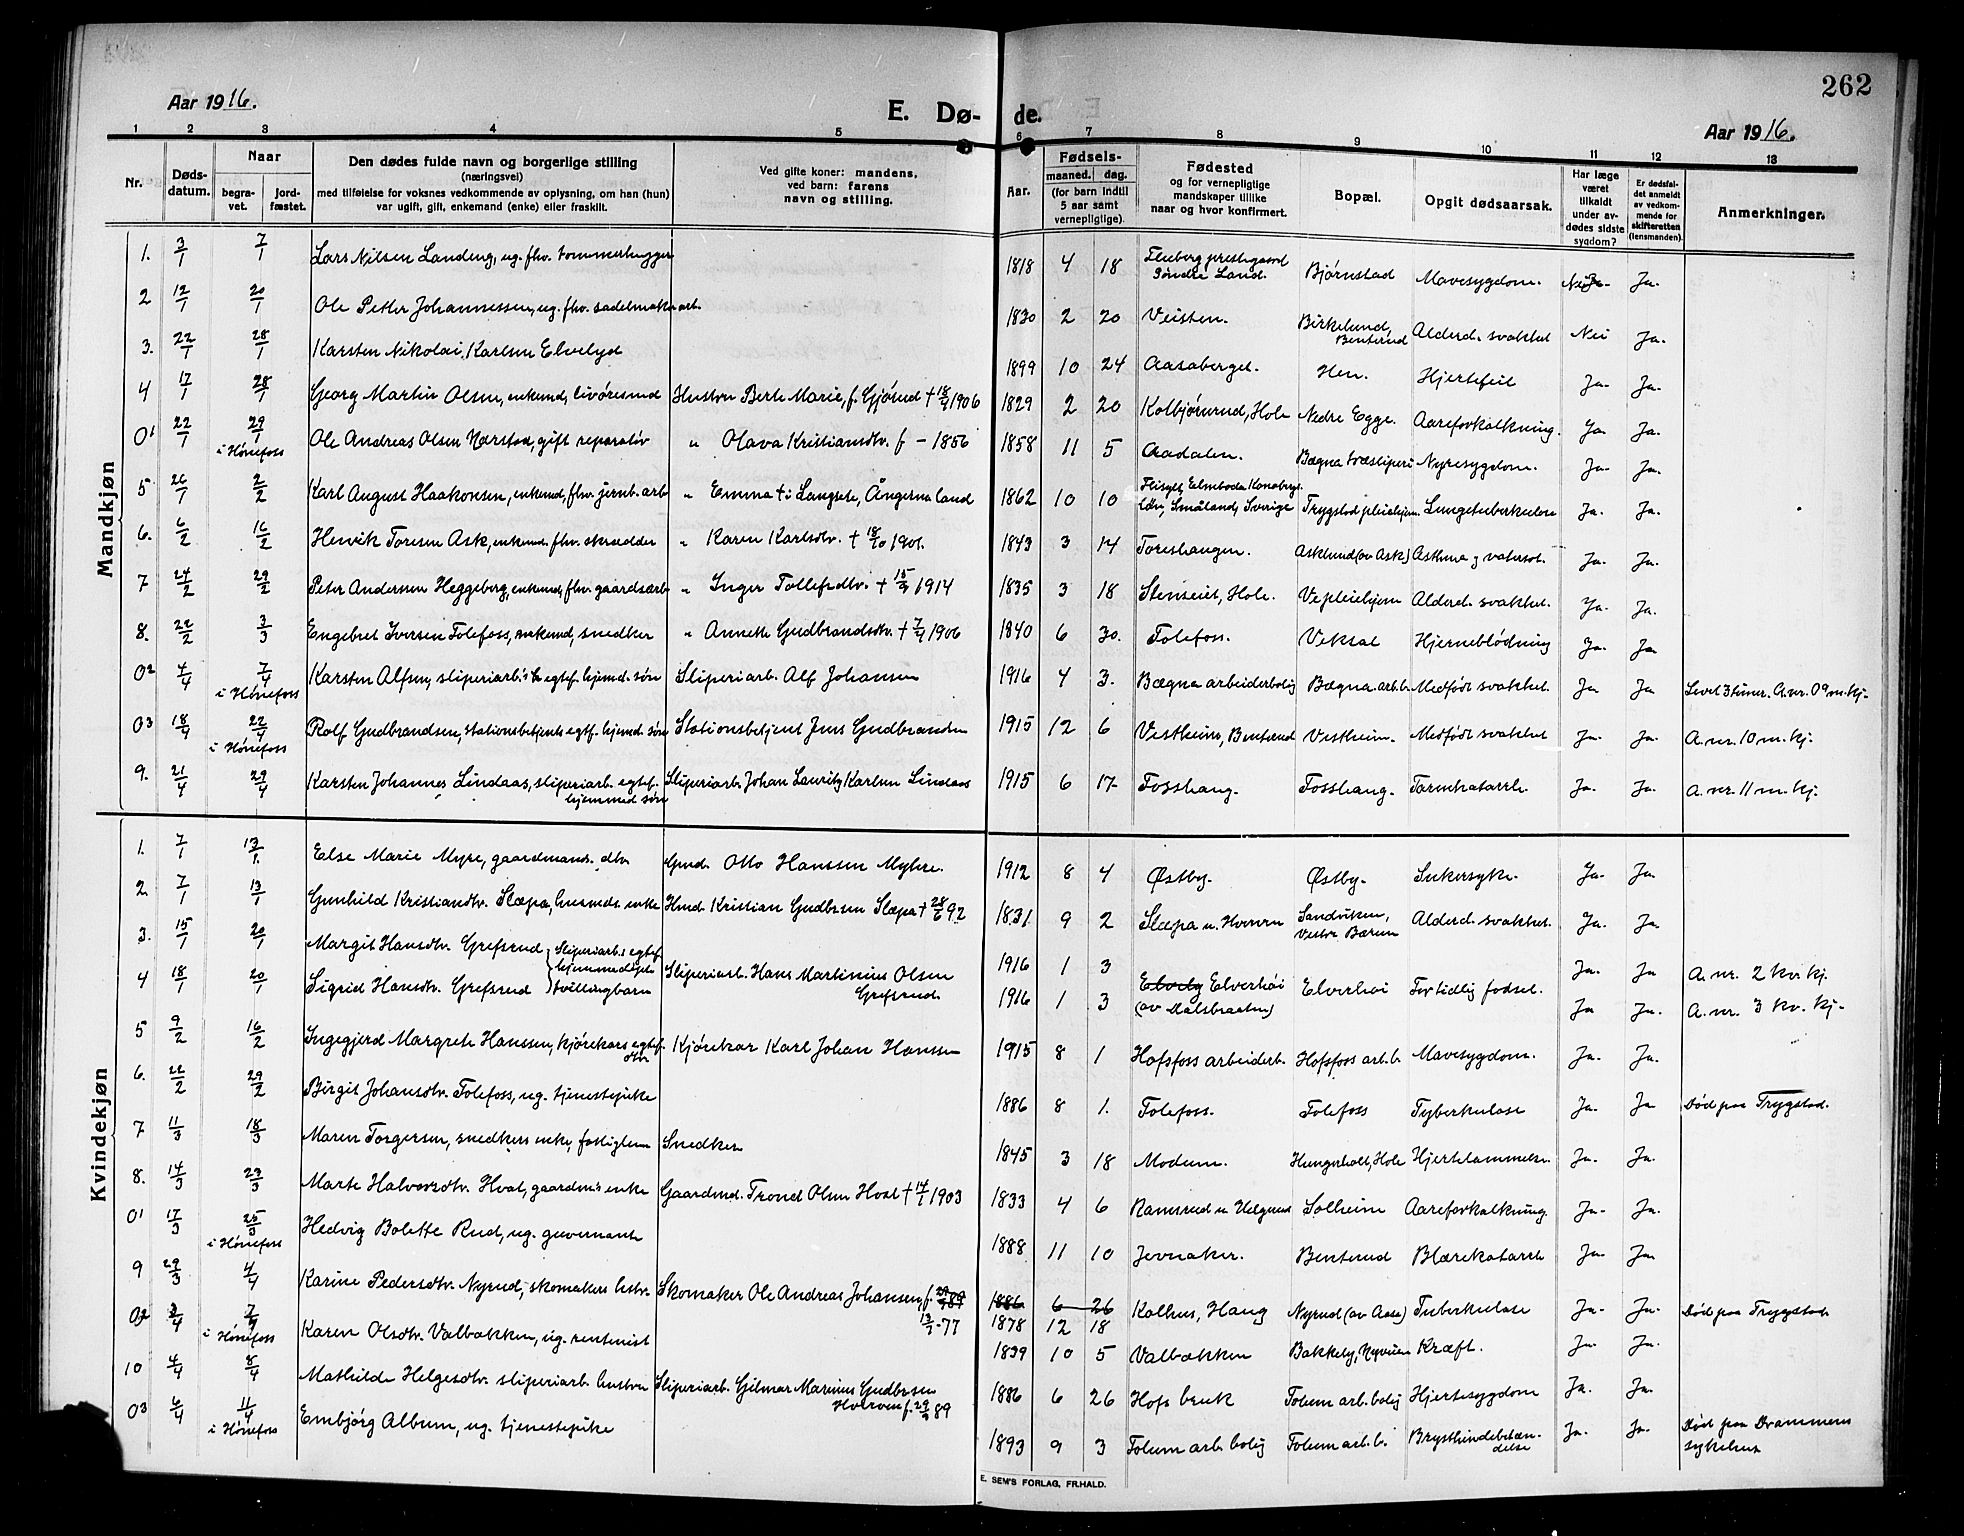 262
Aar 1916.
E. Dø- de.
Aar 1916.
1 2 3 4 5 6 7 8 9 10 11 12 13
Nr.
Døds-
datum.
Naar
begra-
vet.
jord-
fæstet.
Den dødes fulde navn og borgerlige stilling
(næringsvei)
med tilføielse for voksnes vedkommende av oplysning, om han (hun)
var ugift, gift, enkemand (enke) eller fraskilt.
Ved gifte koner: mandens,
ved barn: farens
navn og stilling.
Aar.
Fødsels-
maaned. dag.
(for barn indtil
5 aar samt
vernepligtige).
Fødested
og for vernepligtige
mandskaper tillike
naar og hvor konfirmert.
Bopæl.
Opgit dødsaarsak.
Har læge
været
tilkaldt
under av-
dødes sidste
sygdom?
Er dødsfal-
det anmeldt
av vedkom-
mende for
skifteretten
(lensmanden).
Anmerkninger.
Mandkjøn
1. 3/1 7/1 Lars Nilsen Landeng, ug. fhv. tømmerhugger 1818 4 18 Fluberg prestegaard Søndre Land. Bjørnstad Mavesygdom. Ja.
2 12/1 20/1 Ole Petter Johannessen, ug. fhv. sadelmakerarb. 1830 2 20 Veisten. Birkelund, Benterud Alderd. svakhet Nei Ja.
3. 22/1 28/1 Karsten Nikolai Karlsen Elvelyd 1899 10 24 Aasaberget. Hen. Hjertefeil Ja. Ja.
4 17/1 28/1 Georg Martin Olsen, enkemd, livøresmd Hustru Berte Marie, f. Gjørud + 18/9 1906 1829 2 20 Kolbjørnrud, Hole Nedre Egge. Aareforkalkning. Ja. Ja.
01 22/1 29/1 i Hønefoss Ole Andreas Olsen Nærstad, gift reparatør " Olava Kristiansdtr. f - 1856 1858 11 5 Aadalen. Bægna træsliperi Nyresygdom. Ja. Ja.
5 26/1 2/2 Karl August Haakonsen, enkemd, fhv. jernb. arb. " Emma + i Langsele, Ångermanland 1862 10 10 Småland, Sverige Trygstad pleiehjem. Lungetuberkulose Ja. Ja.
6. 6/2 16/2 Henrik Toresen Ask, enkemd. fhv. skrædder " Karen Karlsdtr. + 18/10 1901. 1843 3 14 Toreshaugen. Asklund (av Ask) Asthma og vatersot. Ja. Ja.
7 24/2 29/2 Peter Andersen Heggeberg, enkemd, fhv. gaardsarb. " Inger Tollefsdtr. + 15/3 1914 1835 3 18 Stenseiet, Hole. Vepleiehjem Alderd. svakhet. Ja. Ja.
8. 22/2 3/3 Engebret Iversen Tolefoss, enkemd, snedker " Annette Gudbrandsdtr. + 7/4 1906 1840 6 30. Tolefoss. Veksal Hjerneblødning Ja. Ja
02 4/4 7/4 i Hønefoss Karsten Alfsen, sliperiarb.s egtef. hjemd. søn Sliperiarb. Alf Johansen 1916 4 3. Bægna arbeiderbolig Bægna. arb.b. Medfødt svakhet. Ja Ja Levet 3 timer. A.nr. 09 m.kj.
03 18/4 22/4 i Hønefoss Rolf Gudbrandsen, stationsbetjents egtf. hjemd. søn Stationsbetjent Jens Gudbrandsen 1915 12 6 Vestheim, Benterud Vestheim. Medfødt svakhet Ja. Ja. A.nr. 10 m.kj.
9. 21/4 29/4 Karsten Johannes Lindaas, sliperiarb. egtef. hjemmed søn Sliperiarb. Johan Lauritz Karlsen Lindaas 1915 6 17. Fosshaug. Fosshaug. Tarmkatarrh. Ja. Ja. A.nr. 11 m.kj.
Kvindekjøn
1. 7/1 13/1. Else Marie Myre, gaardmands. dtr. Gmd. Otto Hanssen Myhre. 1912 8 4 Østby. Østby. Sukersyke. Ja. Ja.
2 7/1 13/1 Gunhild Kristiansdtr. Slæpa, husmds. enke Hmd. Kristian Gudbrsen Slæpa + 28/6 92 1831. 9 2 Slæpa u. Hverven Sandviken, Vestre Bærum Alderd. svakhet. Ja. Ja.
3. 15/1 20/1 Margit Hansdtr. Grefsrud 1916 1 3 Ja. Ja A.nr. 2 kv.kj.
Sliperiarb.s egtef. hjemmedøpte tvillingbarn Sliperiarb. Hans Martinius Olsen Grefsrud. Elvely Elverhøi (av Malsbraaten) Elverhøi For tidlig fødsel.
4 18/1 20/1 Sigrid Hansdtr. Grefsrud 1916 1 3 Ja Ja. A.nr. 3 kv.kj.
5 9/2 16/2 Ingegjerd Margrete Hanssen, kjørekars egtef. dtr. Kjørekar Karl Johan Hanssen 1915 8 1 Hofsfoss arbeiderb. Hofsfoss arb.b. Mavesygdom. Ja. Ja.
6. 22/2 29/2 Birgit Johansdtr. Tolefoss, ug. tjenestepike 1886 8 1. Tolefoss. Tolefoss Tyberkulose Ja. Ja Død paa Trygstad.
7 11/3 18/3 Maren Torgersen, snedkers enke, fattiglem Snedker 1845 3 18 Modum. Hungerholt, Hole Hjertelammelse. Ja. Ja.
8. 14/3 23/3 Marte Halvorsdtr. Hval, gaardm.s enke Gaardmd. Trond Olsen Hval + 14/1 1903 1833 4 6 Ramsrud u Helgerud Solheim Aareforkalkning. Ja. Ja.
01 17/3 25/3 i Hønefoss Hedvig Bolette Rud, ug. guvernante 1888 11 10 Jevnaker. Benterud Blærekatarrh Ja. Ja.
9 29/3 4/4 Karine Pedersdtr. Nyrud, skomakers hustr. Skomaker Ole Andreas Johansen, f. 13/7 -77 1886 6 26 1878 12 18 Kolhus, Haug Nyrud (av Aase) Tuberkulose Ja. Ja. Død paa Trygstad
02 3/4 7/4 i Hønefoss Karen Olsdtr. Valbakken, ug. rentenist 1839 10 5 Valbækken Bakkely, Hyveien Kræft. Ja. Ja.
10 4/4 8/4 Mathilde Helgesdtr. sliperiarb. hustru Sliperiarb. Hjilmar Marinius Gudbrsen Hverven f. 29/9 89 1886 6 26 Hofs bruk Tolum arb. bolig Hjertesygdom Ja. Ja.
03 6/4 11/4 i Hønefoss Embjørg Album, ug. tjenestepike 1893 9 3 Tolum arb. bolig Tolum arb. b. Brysthindebetændelse Ja. Ja. Død paa Drammens sykehus
E. SEM'S FORLAG, FR.HALD.